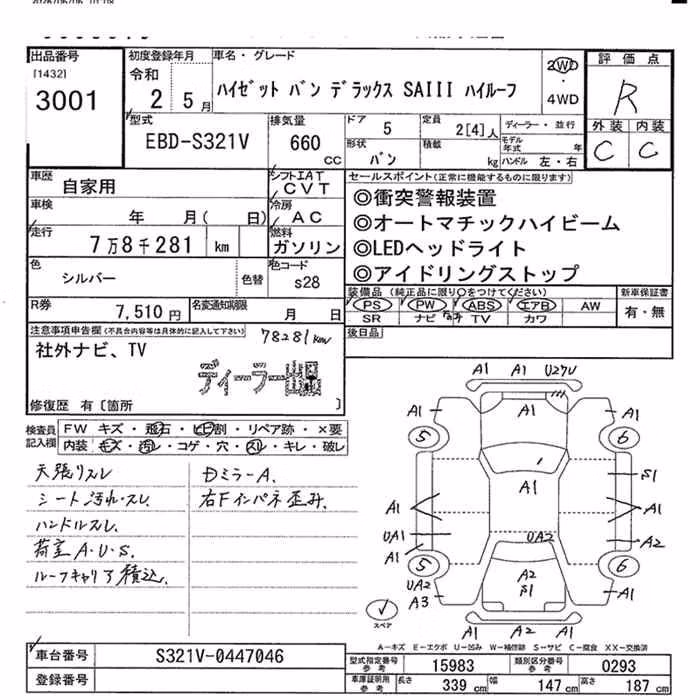 出品番号
[1432]
3001
初度登録年月
令和
2 5月
車名・グレード
ハイゼット バン デラックス SAIII ハイルーフ
2WD
・
4WD
評価点
R
外装 内装
C C
型式
EBD-S321V
排気量
660
cc
ドア 5
形状 バン
定員 2[4]人
積載 kg
ディーラー・並行
モデル年式 年
ハンドル 左・右
車歴
自家用
シフト IAT
CVT
車検
年 月( 日)
冷房
AC
走行
7万8千281 km
燃料
ガソリン
色
シルバー
色替
色コード
s28
セールスポイント(正常に機能するものに限ります)
◎衝突警報装置
◎オートマチックハイビーム
◎LEDヘッドライト
◎アイドリングストップ
装備品 (純正品に限り○をつけてください)
PS PW ABS エアB AW
SR ナビ TV カワ
新車保証書
有・無
後日品
R券
7,510円
名変通知期限
月 日
注意事項申告欄(不具合内容等は具体的に記入して下さい)
78281km
社外ナビ、TV
ディーラー出品
修復歴 有〔箇所 〕
検査員
記入欄
FW キズ・飛石・ヒビ割・リペア跡・×要
内装・キズ・汚れ・コゲ・穴・スレ・キレ・破レ
天張リスレ
シート汚れ・スレ
ハンドルスレ.
荷室A・U・S.
ルーフキャリア積込.
DミラーA.
右Fインパネ歪み.
A1 A1 U27U
A1 A1 A1
5 6
S1
A1 A1 A1
UA1 UA2 A2
A1
5 6
UA2 A2
A3 S1 A1
A1 A2 A1
スペア
A-キズ E-エクボ U-凹み W-補修跡 S-サビ C-腐食 XX-交換済
車台番号
S321V-0447046
登録番号
型式指定番号
参考
15983
類別区分番号
参考
0293
車庫証明用
参考
長さ 339 cm
幅 147 cm
高さ 187 cm